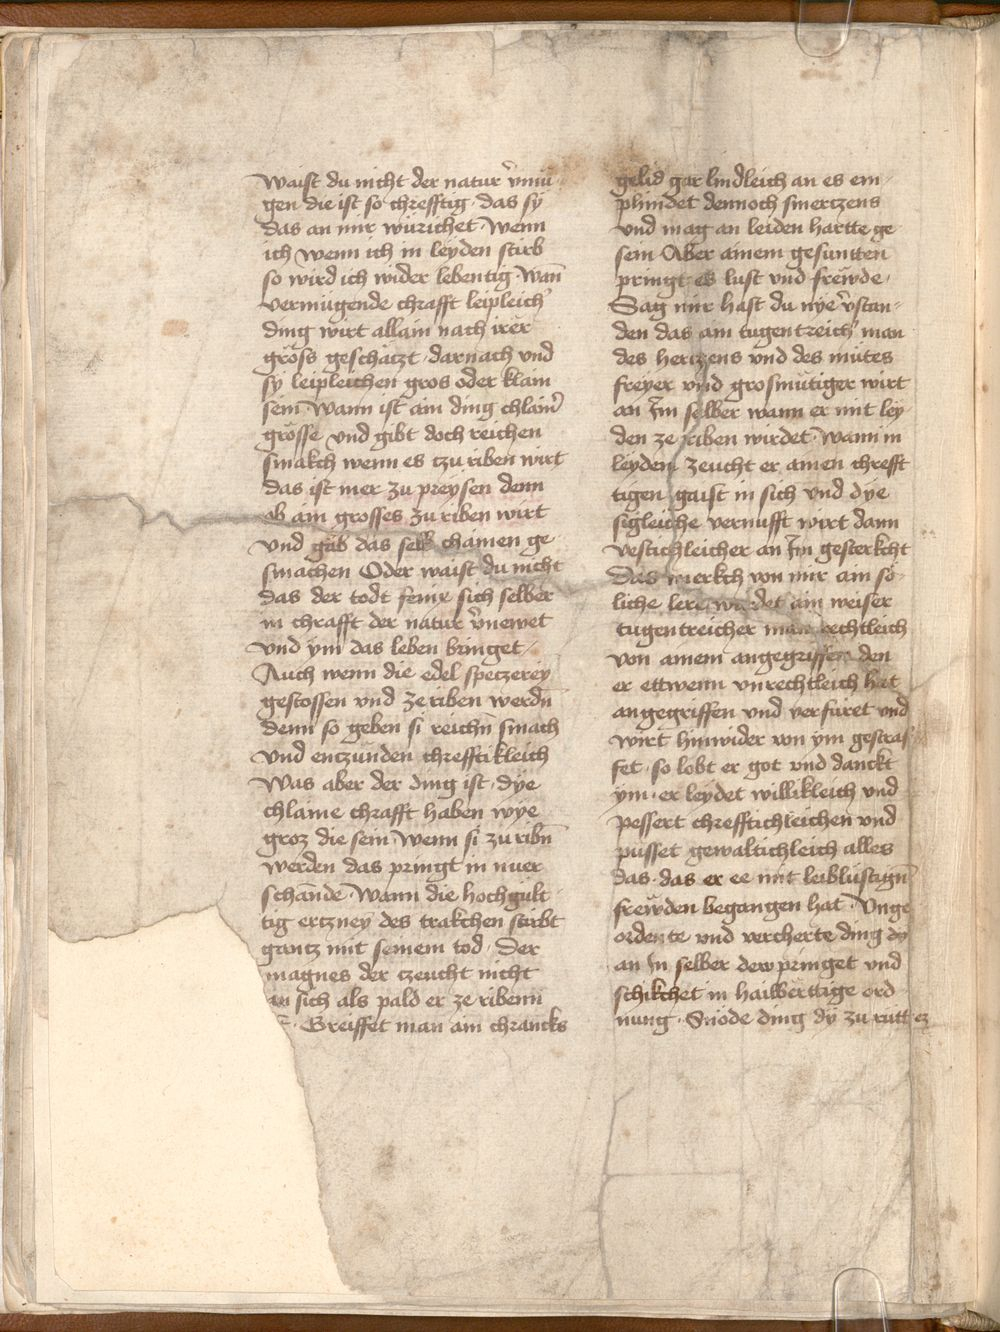 Waist du nicht der natur v̉mü-
gen die ist so chrefftig · das sy
das an mir würichet · Wenn
ich wenn ich in leyden stirb
so wird ich wider lebentig · Wan̄
vermügende chrafft leipleich̉
ding wirt allain nach irer
gröss geschätzt darnach und
sy leipleichen gros oder klain
sein · Wann ist ain ding chlain̉
grösse und gibt doch reichen
smakch wenn es czu riben wirt
das ist mer zu preysen denn
ob ain grosses zu riben wirt
und gäb das selb chainen ge
smachen Oder waist du nicht
das der todt fenix sich selber
in chrafft der natur v̉newet
und ym das leben bringet ·
Auch wenn die edel speczerey
gestossen und ze riben werdn̄
denn so geben si reichn̄ smach
und entzünden chrefftikleich
Was aber der ding ist · dye
chlaine chrafft haben wye
groz die sein · Wenn si zu ribn̄
werden das pringt in nuer
schande · Wann die hochgült
tig ertzney des trakchen stirbt
gantz mit seinem tod · Der
magnes der czeucht nicht
an sich als pald er ze ribenn
· Greiffet man ain chrancks
gelid gar lindleich an es em-
phindet dennoch smertzens
und mag an leiden hartte ge
sein Aber ainem gesunten
pringt es lust und frewde ·
Sag mir hast du nye v̉stan-
den das ain tugentreich̉ man
des hertzens und des mütes
freyer und grosmütiger wirt
an Im selber wann er mit ley
den ze riben wirdet · Wann in
leyden zeucht er ainen chrefft
tigen gaist in sich und dye
sigleiche vernufft wirt dann
vestichleicher an Im gesterkcht
Das merkch von mir ain sö-
liche lere wirdet ain weiser
tugentreicher man rechtleich
von ainem angegriffen den
er ettwenn unrechtleich hat
angegriffen und verfüret und
wirt hinwider von ym gestraf
fet · so lobt er got und danckt
ym · er leydet willikleich und
pessert chrefftichleichen und
pusset gewaltichleich alles
das · das er ee mit leiblüstign̄
frewden begangen hat · Unge
ordente und vercherte ding dy
an In selber dew pringet und
schikchet in hailwerttige ord
nung · Snöde ding dy zu rütt ez